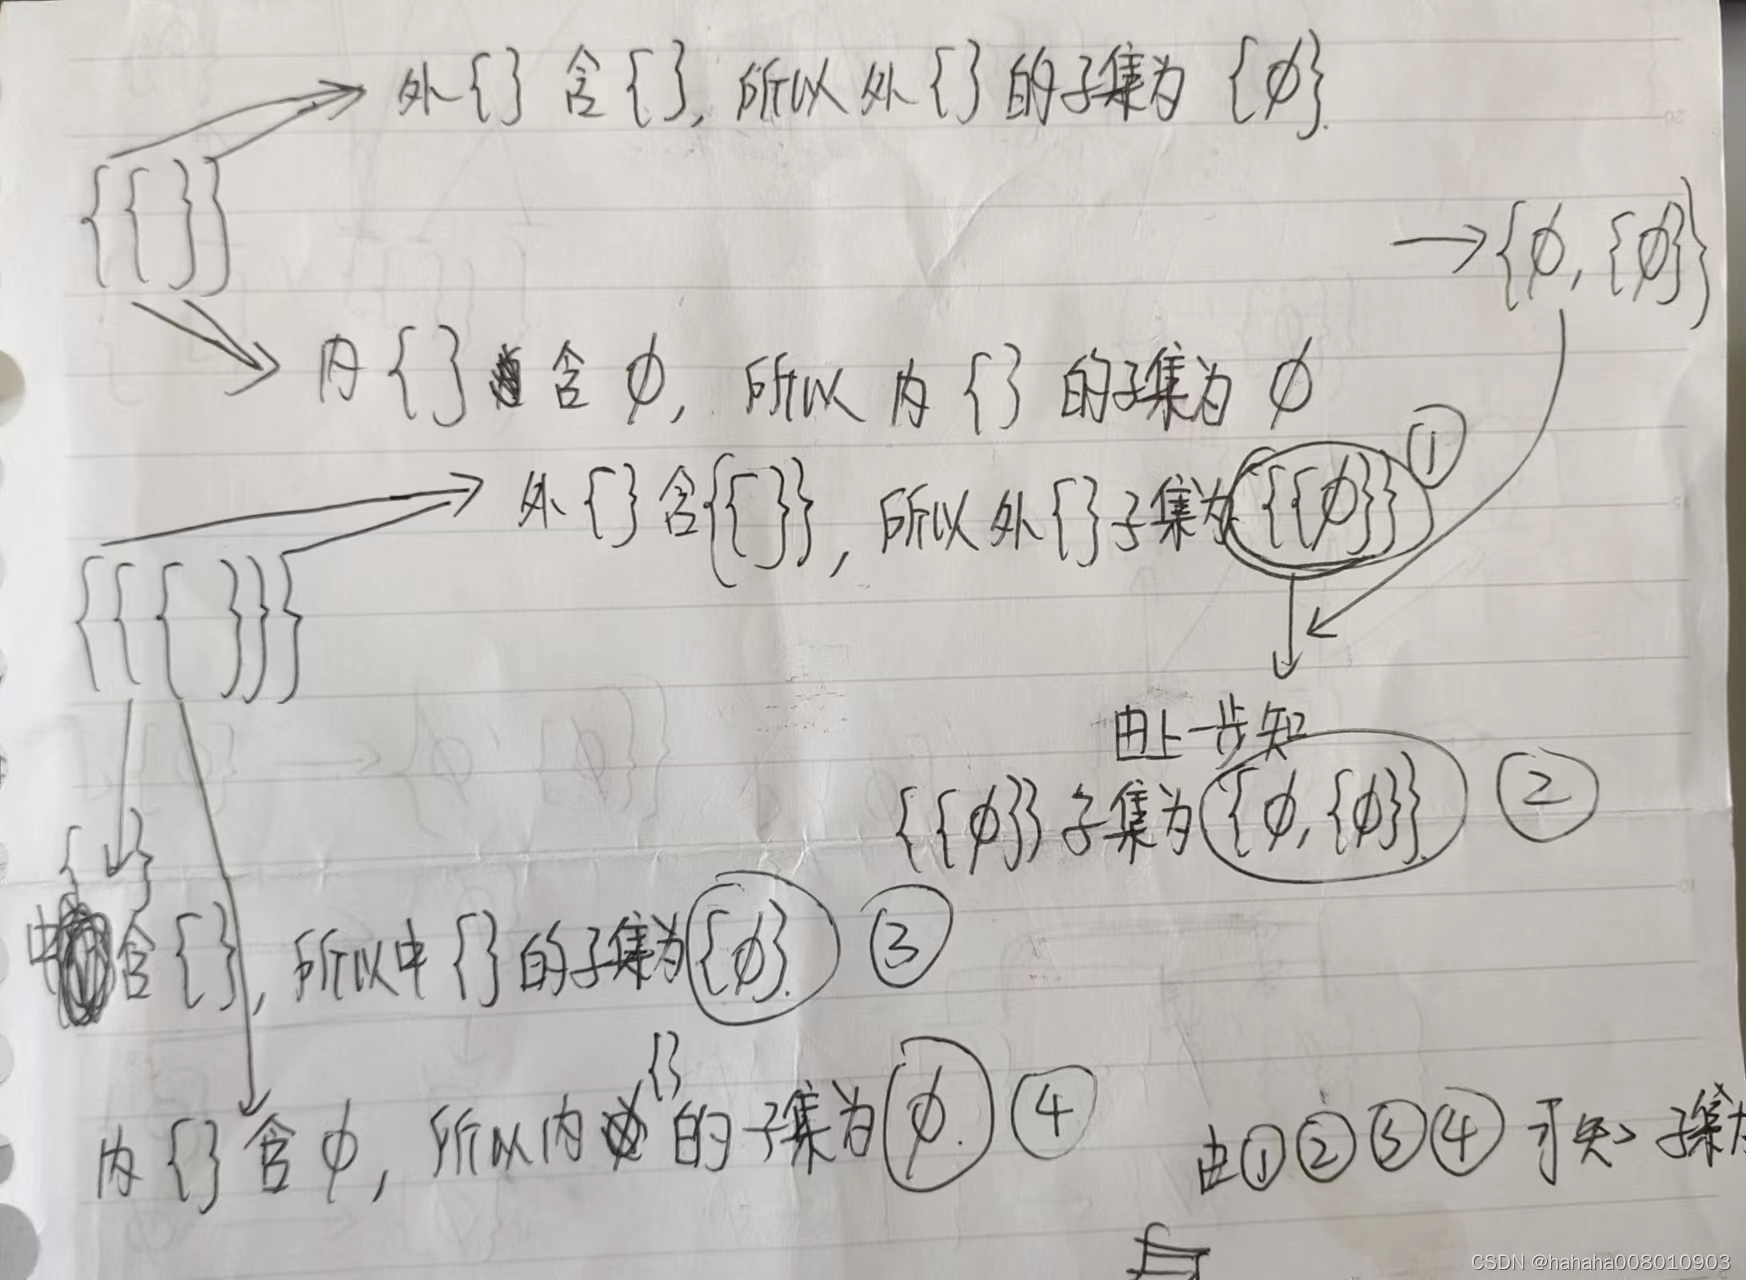 外{}含{}, 所以外{}的子集为{∅}.
{{}}
→{∅, {∅}}
内{}含∅, 所以内{}的子集为∅
①
外{}含{{}}, 所以外{}子集为{{∅}}
{{{}}}
由上一步知
{{∅}}子集为{∅, {∅}}. ②
{}
中含{}, 所以中{}的子集为{∅}. ③
{}
内{}含∅, 所以内的子集为∅. ④
由①②③④可知子集为
CSDN @hahaha008010903